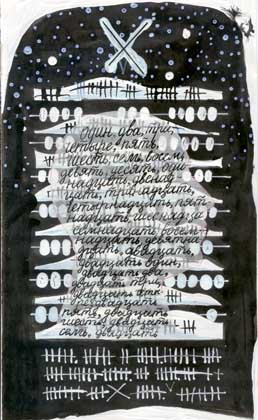 один, два, три,
четыре, пять,
шесть, семь, восемь,
девять, десять, один-
надцать, двенад-
цать, тринадцать,
четырнадцать, пят-
надцать, шестнадца
семнадцать, восем-
надцать, девятна-
дцать, двадцать,
двадцать один,
двадцать два,
двадцать три,
двадцать
двадцать
пять, двадцать
шесть, двадцать
семь, двадцать